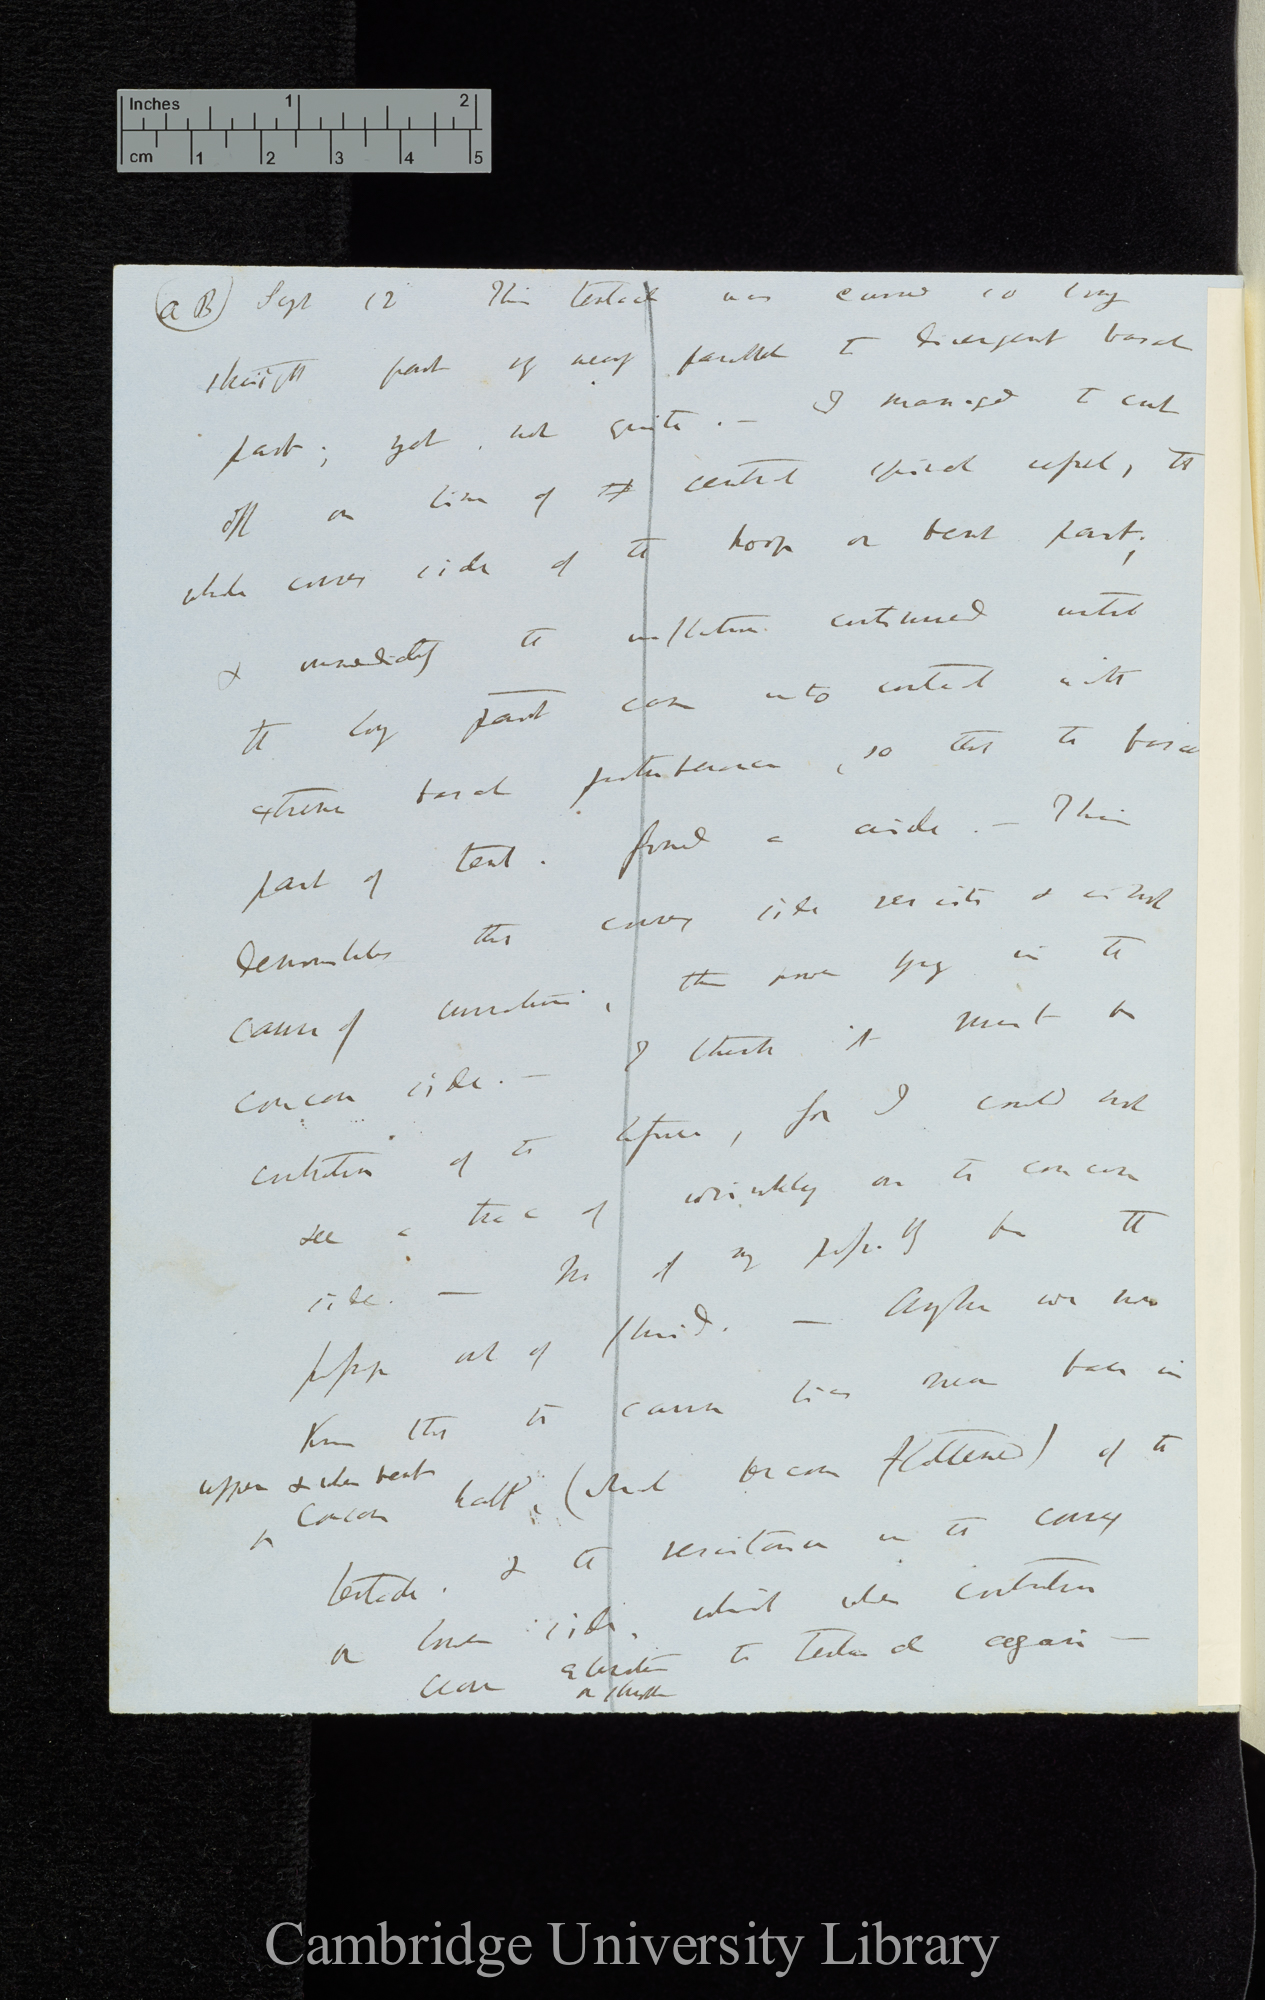 Inches 1 2
cm 1 2 3 4 5
(a B) Sept 12 This tentacle was curved so long
straight part is nearly parallel to divergent basal
part; yet, not quite. — I managed to cut
off on line of the central spiral vessel, the
whole convex side of the hoop or bent part;
& immediately the inflection continued until
the long part came into contact with
extreme basal protuberance, so that the basal
part of tent. formed a circle. — This
demonstrates that convex side resists & is not
cause of curvature, the power lying in the
concave side. — I think it must be
contraction of the tissue, for I could not
see a trace of wrinkling on the concave
side. — it may possibly be the
passage out of fluid. — Anyhow we now
know that the cause lies near base in
upper & when bent
or concave half, (which become flattened) of the
tentacle. & the resistance in the convex
or lower side, which when contraction
cease the tentacle again —
or straighten
Cambridge University Library